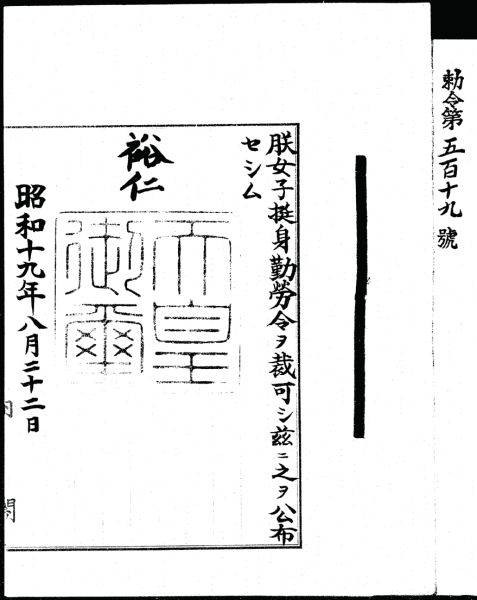 勅令第五百十九號
朕女子挺身勤勞令ヲ裁可シ茲ニ之ヲ公布
セシム
裕仁
天皇
御璽
昭和十九年八月二十二日